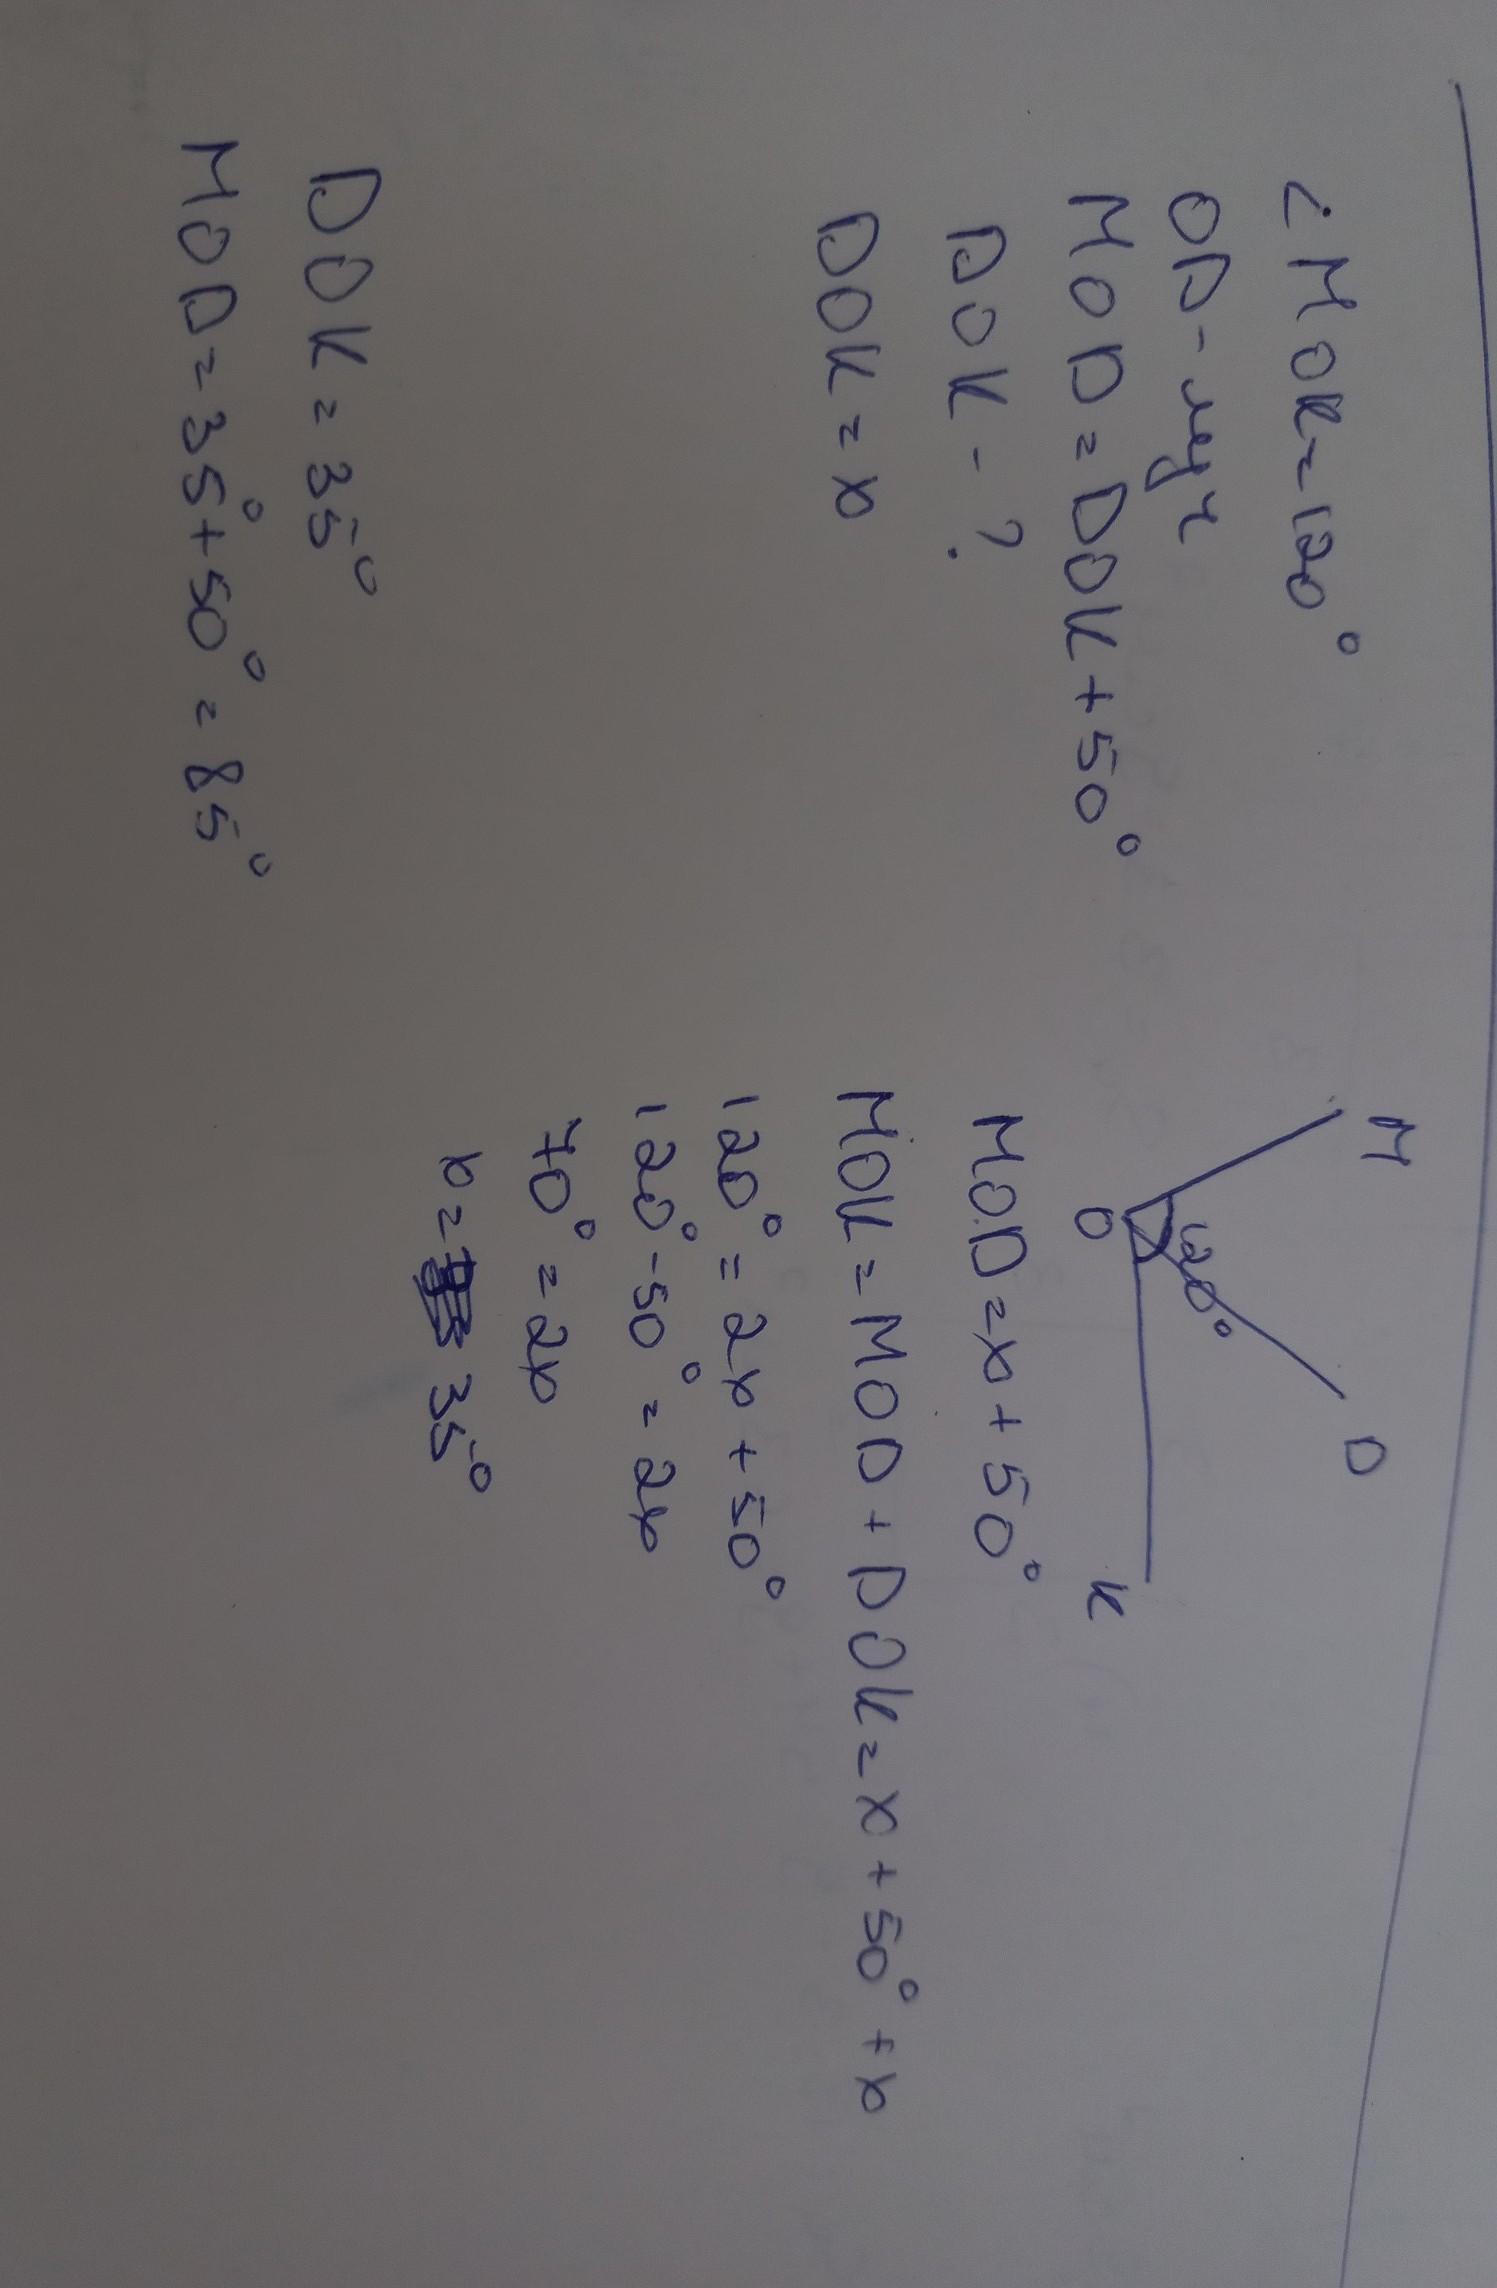 ∠ MOK=120°
OD-луч
MOD=DOK+50°
DOK-?
DOK=x
DOK=35°
MOD=35°+50°=85°
M
D
120°
O
K
MOD=x+50°
MOK=MOD+DOK=x+50°+x
120°=2x+50°
120°-50°=2x
70°=2x
x=35°